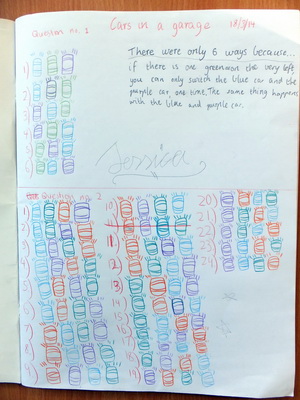 Question no. 1
Cars in a garage
18/3/14
There were only 6 ways because...
if there is one green on the very left
you can only switch the blue car and the
purple car one time. The same thing happens
with the blue and purple car.
1)
2)
3)
4)
5)
6)
Jessica
Question no. 2
1)
2)
3)
4)
5)
6)
7)
8)
9)
10)
11)
12)
13)
14)
15)
16)
17)
18)
19)
20)
21)
22)
23)
24)